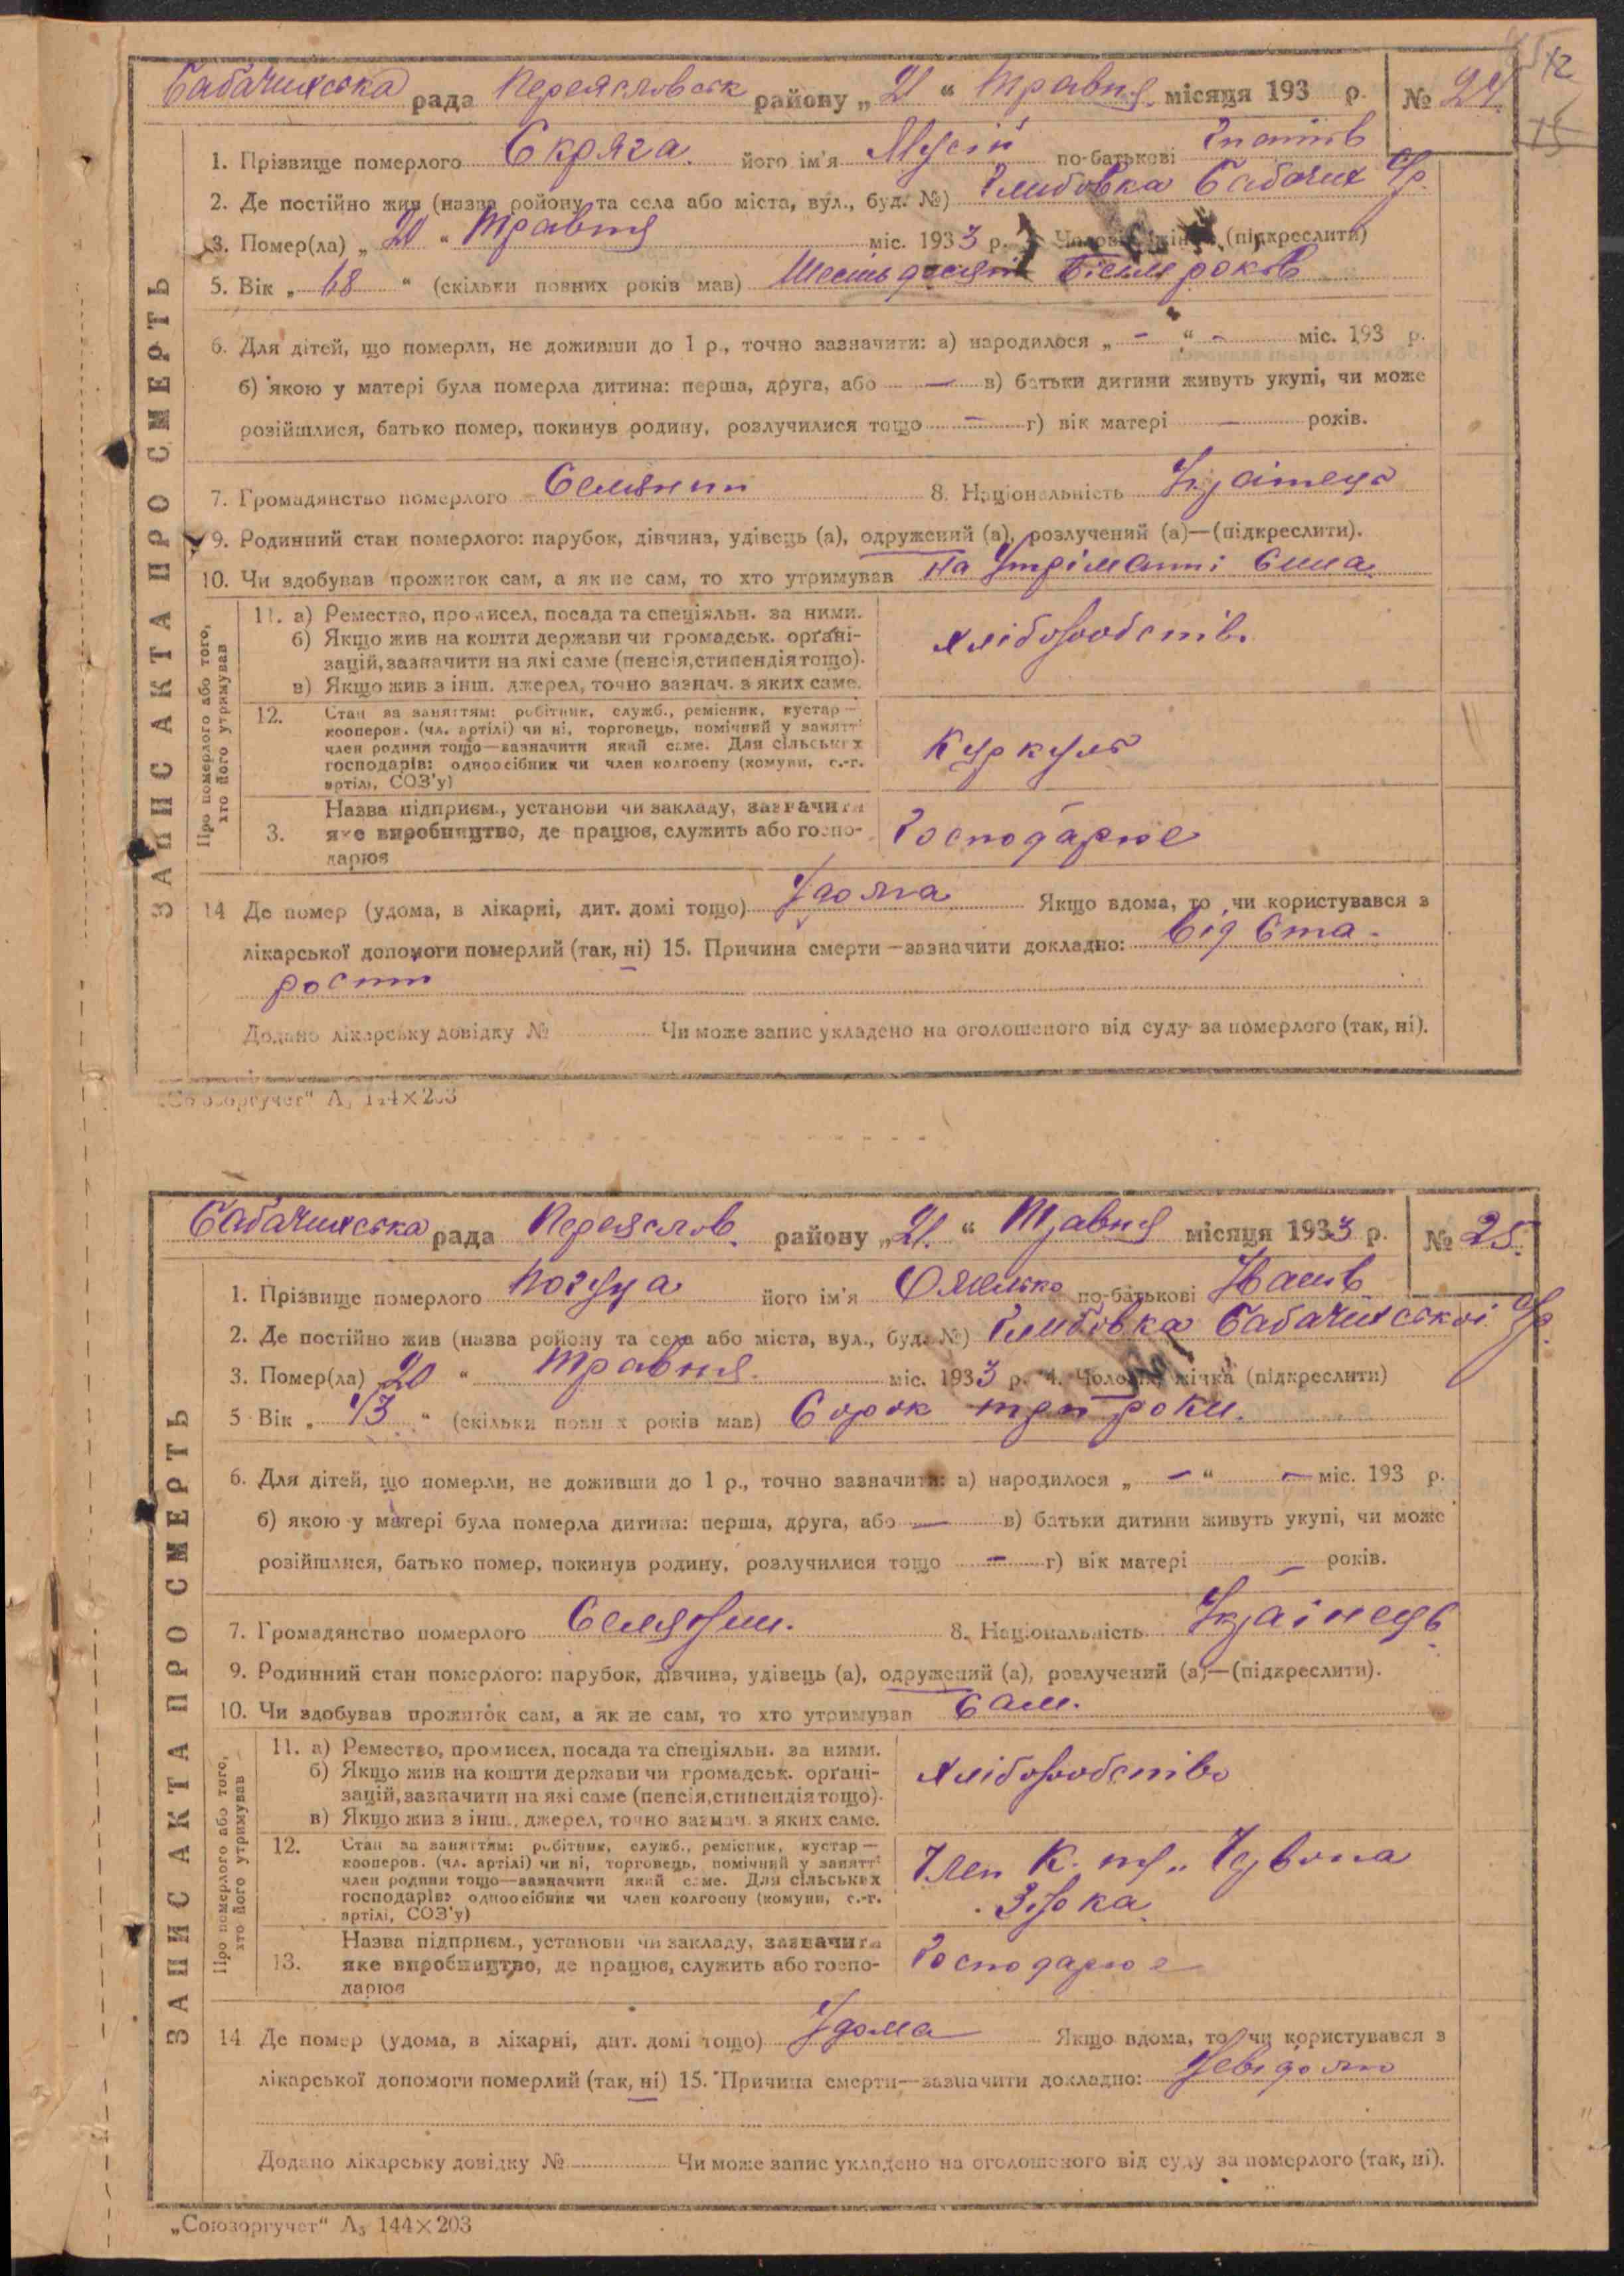 Бабачихська рада Переясловськ району „21“ Травня місяця 193 р. № 24.
1. Прізвище померлого Скряга його ім'я Мусій по-батькові Гнатів
2. Де постійно жив (назва ройону та села або міста, вул., буд. №) Глибовка Бабачих
3. Помер(ла) „20“ Травня міс. 1933 р. (підкреслити)
5. Вік „68“ (скільки повних років мав) Шістьдесят вісьмя років
6. Для дітей, що померли, не доживши до 1 р., точно зазначити: а) народилося „ – “ – міс. 193 р.
б) якою у матері була померла дитина: перша, друга, або — в) батьки дитини живуть укупі, чи може
розійшлися, батько помер, покинув родину, розлучилися тощо – г) вік матері — років.
7. Громадянство померлого Селянин 8. Національність Українець
9. Родинний стан померлого: парубок, дівчина, удівець (а), одружений (а), розлучений (а)—(підкреслити).
10. Чи здобував прожиток сам, а як не сам, то хто утримував на Утріманні Сина
ЗАПИС АКТА ПРО СМЕРТЬ
Про померлого або того,
хто його утримував
11. а) Ремество, промисел, посада та спеціяльн. за ними.
б) Якщо жив на кошти держави чи громадськ. орґані-
зацій, зазначити на які саме (пенсія, стипендія тощо).
в) Якщо жив з інш. джерел, точно зазнач. з яких саме.
12. Стан за заняттям: робітник, служб., ремісник, кустар—
кооперов. (чл. артілі) чи ні, торговець, помічний у занятті
член родини тощо—зазначити який саме. Для сільських
господарів: одноосібник чи член колгоспу (комуни, с.-г.
артілі, СОЗ'у)
Куркуль
3. Назва підприєм., установи чи закладу, зазначити
яке виробництво, де працює, служить або госпо-
дарює
Господарює
14 Де помер (удома, в лікарні, дит. домі тощо) Удома Якщо вдома, то чи користувався з
лікарської допомоги померлий (так, ні) 15. Причина смерти—зазначити докладно: від Ста-
рости
Додано лікарську довідку № Чи може запис укладено на оголошеного від суду за померлого (так, ні).
„Союзоргучет“ А₅ 144×203
Бабачихська рада Переяслов. району „21.“ Травня місяця 1933 р. № 25.
1. Прізвище померлого його ім'я Омелько по-батькові Іванів
2. Де постійно жив (назва ройону та села або міста, вул., буд. №) Глибовка Бабачихської
3. Помер(ла) 20 “ Травня міс. 1933 р. 4. Чоловік, жінка (підкреслити)
5 Вік „43“ (скільки повних років мав) Сорок три роки.
6. Для дітей, що померли, не доживши до 1 р., точно зазначити: а) народилося „ – “ – міс. 193 р.
б) якою у матері була померла дитина: перша, друга, або — в) батьки дитини живуть укупі, чи може
розійшлися, батько помер, покинув родину, розлучилися тощо – г) вік матері – років.
7. Громадянство померлого Селянин. 8. Національність Українець
9. Родинний стан померлого: парубок, дівчина, удівець (а), одружений (а), розлучений (а)—(підкреслити).
10. Чи здобував прожиток сам, а як не сам, то хто утримував Сам.
ЗАПИС АКТА ПРО СМЕРТЬ
Про померлого або того,
хто його утримував
11. а) Ремество, промисел, посада та спеціяльн. за ними.
б) Якщо жив на кошти держави чи громадськ. орґані-
зацій, зазначити на які саме (пенсія, стипендія тощо).
в) Якщо жив з інш. джерел, точно зазнач. з яких саме.
12. Стан за заняттям: робітник, служб., ремісник, кустар—
кооперов. (чл. артілі) чи ні, торговець, помічний у занятті
член родини тощо—зазначити який саме. Для сільських
господарів: одноосібник чи член колгоспу (комуни, с.-г.
артілі, СОЗ'у)
Член К. Червона
Зірка
13. Назва підприєм., установи чи закладу, зазначити
яке виробництво, де працює, служить або госпо-
дарює
Господарює
14 Де помер (удома, в лікарні, дит. домі тощо) Удома Якщо вдома, то чи користувався з
лікарської допомоги померлий (так, ні) 15. Причина смерти—зазначити докладно: Невідомо
Додано лікарську довідку № Чи може запис укладено на оголошеного від суду за померлого (так, ні).
„Союзоргучет“ А₅ 144×203